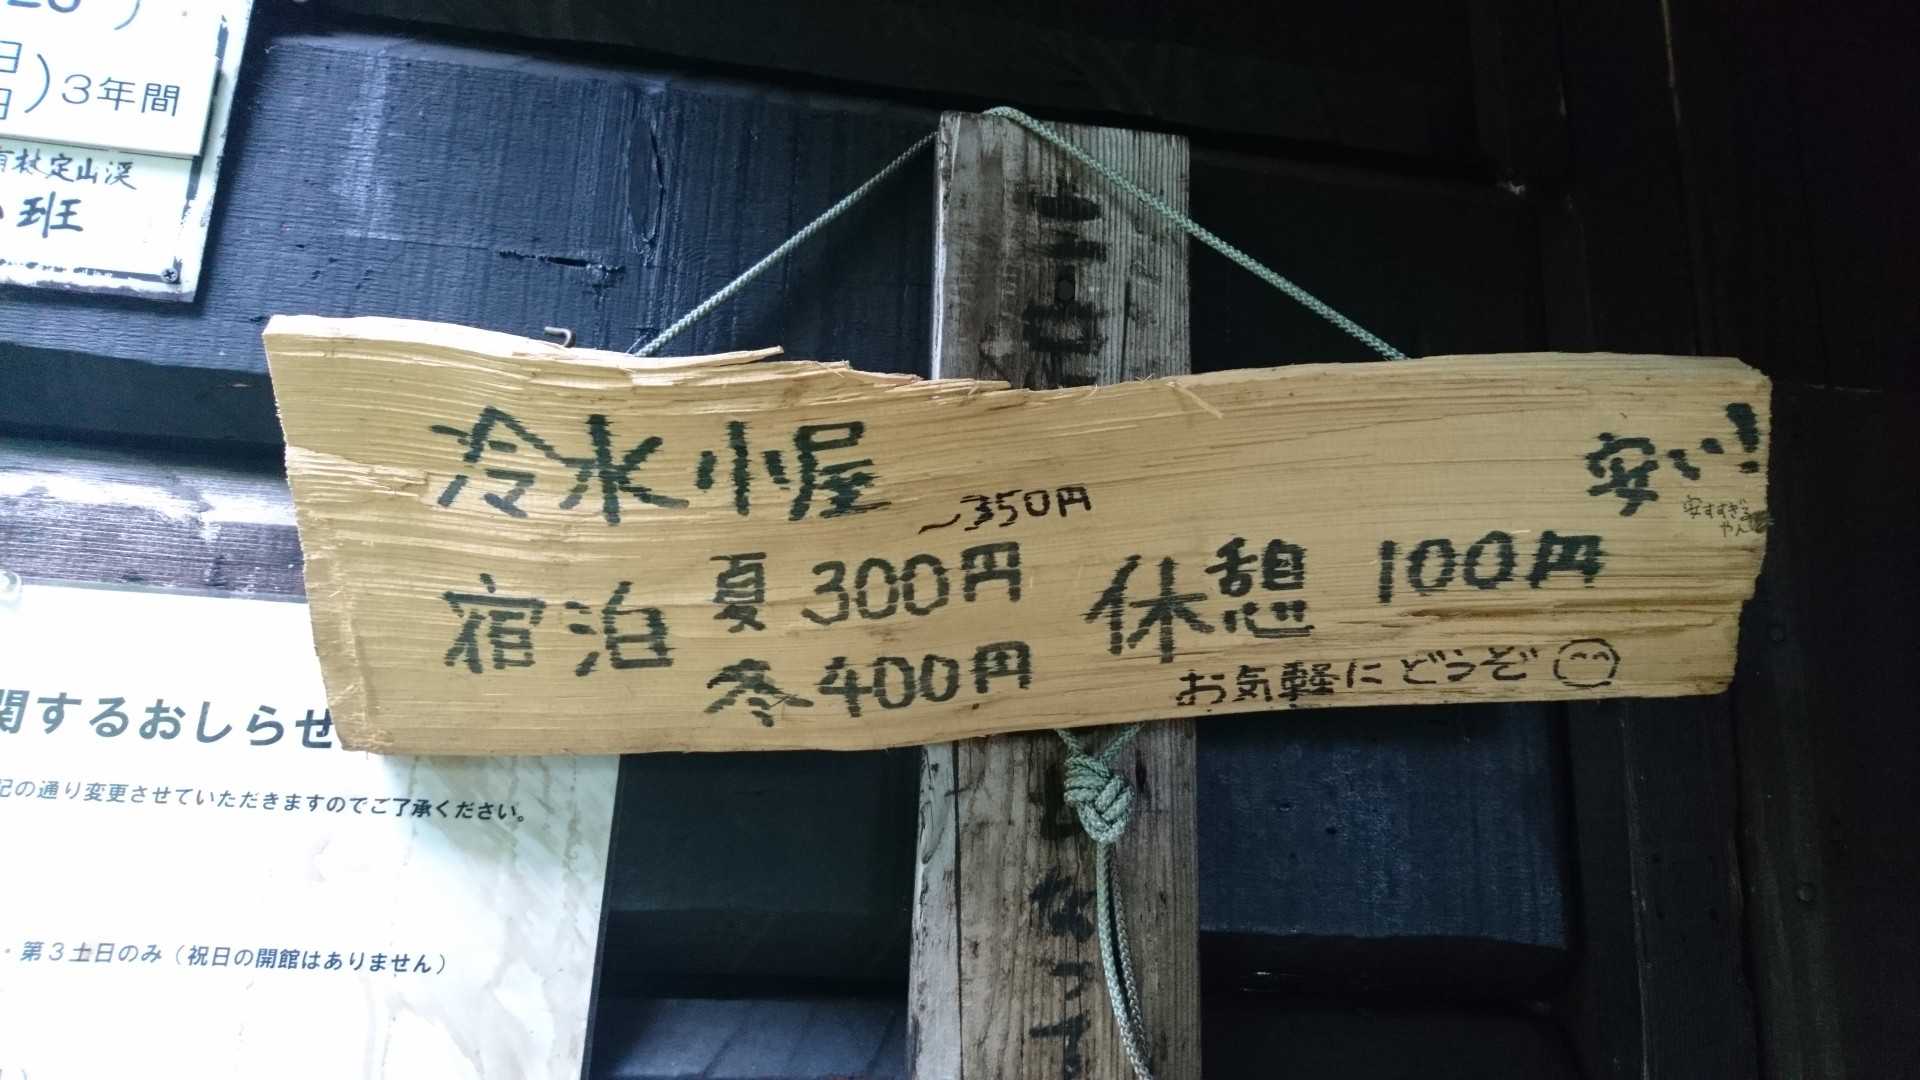 3年間
有林定山渓
班
冷水小屋
～350円
安い!
安すぎる
やん
宿泊
夏 300円
冬 400円
休憩 100円
お気軽にどうぞ
関するおしらせ
記の通り変更させていただきますのでご了承ください。
・第3土日のみ（祝日の開館はありません）
なって